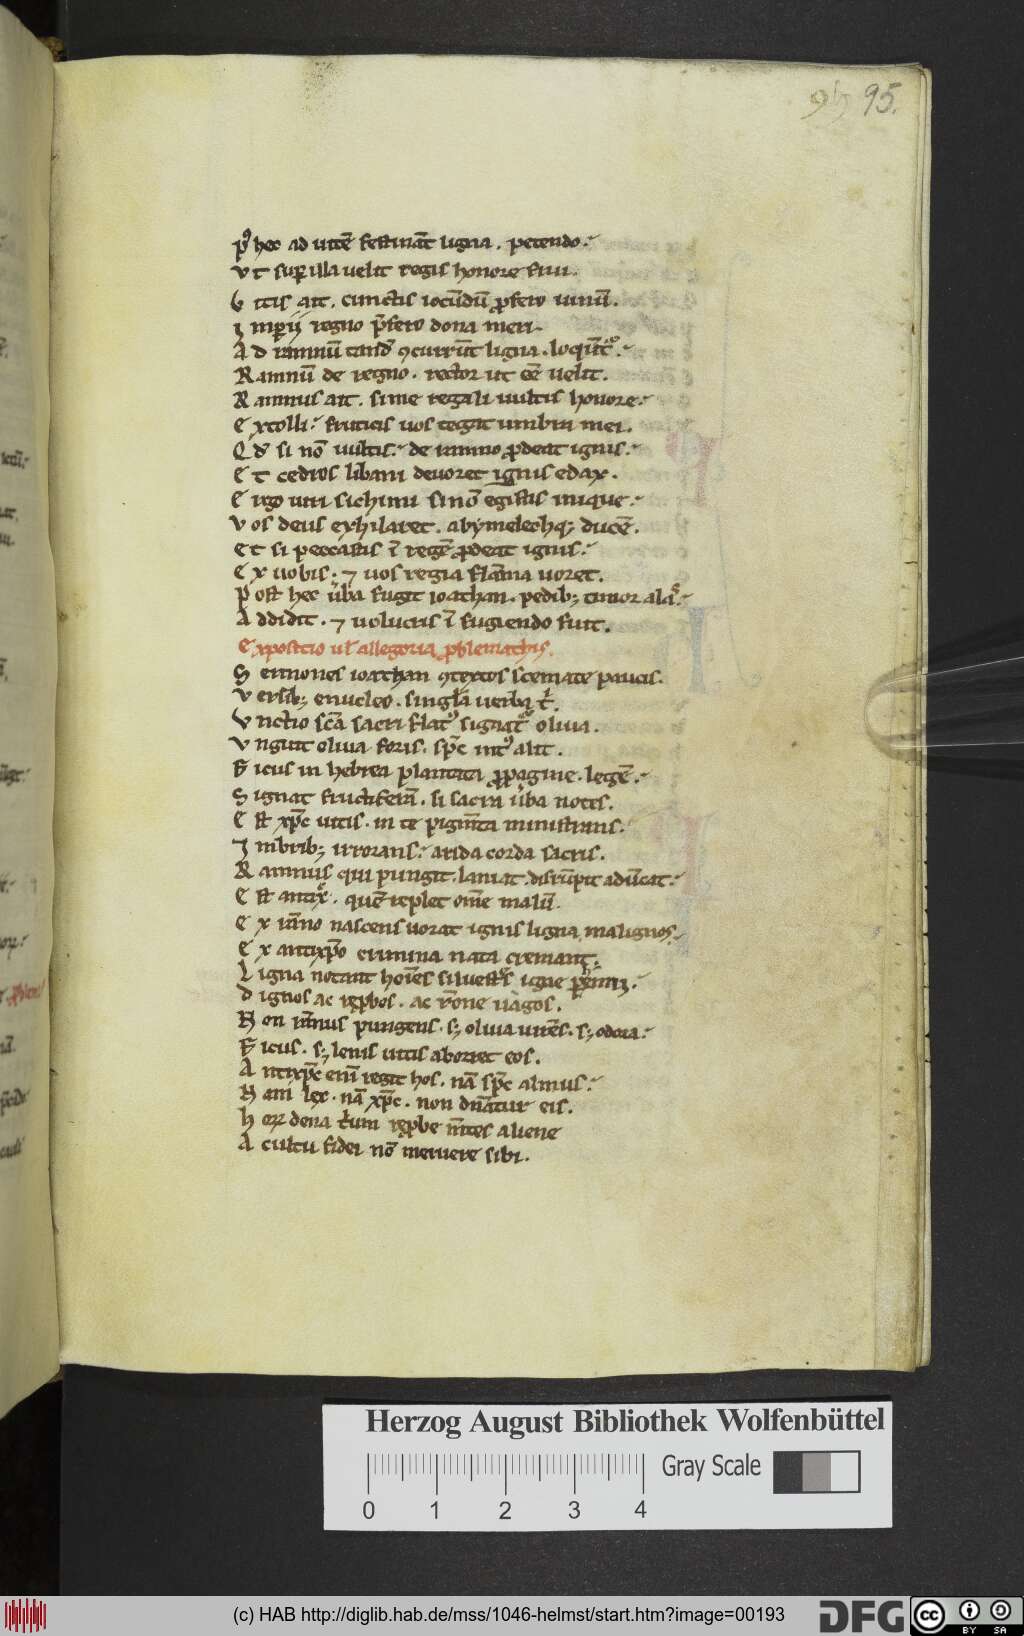 95.
p᷒ hec ad uitē festināt ligna. petendo.
Vt sup illa uelit regis honore frui.
Vitis ait. cunctis iocūdū ꝓfero uinū.
Impij regno p̄fero dona meri.
Ad ramnū tand' ꝯcurrūt ligna. loqūt᷒.
Ramnū de regno. rector ut eē uelit.
Ramnus ait. si me regali uultis honore.
Extolli. fruticis uos tegat umbra mei.
Qđ si nō uultis. de ramno ꝓdeat ignis.
Et cedros libani deuoret ignis edax.
Ergo uiri sichimi si nō egistis inique.
Vos deus exhilaret. abymelechq; ducē.
Et si peccastis ī regē ꝓdeat ignis.
Ex uobis. ⁊ uos regia flāma uoret.
Post hec ūba fugit ioathan. pedib; timor alas
Addidit. ⁊ uolucris ī fugiendo fuit.
Expositio ul' allegoria ꝓblemathis.
Sermones ioathan ꝯtextos scemate paucis.
Versib; enucleo. singl'a uerba t'.
Vnctio sc̄a sacri flat᷒ signat᷒ oliua.
Vnguit oliua foris. sp̄c int᷒ alit.
Ficus in hebrea plantata ꝓpagine. legē.
Signat fructiferā. si sacra ūba notes.
Est xp̄c uitis. in te pigm̄ta ministrans.
Imbrib; irrorans. arida corda sacris.
Ramnus qui pungit. laniat. disrūpit aduncat.
Est antix̄. quē replet om̄e malū.
Ex rāno nascens uorat ignis ligna malignos.
Ex antixp̄o crimina nata cremant.
Ligna notant hoīes siluestres igne phennis.
Dignos ac reꝓbos. ac r̄one uagos.
Non rānus pungens. s; oliua uirēs. s; odora.
Ficus. s; lenis uitis aborret eos.
Antixp̄c enī regit hos. nā sp̄c almus.
Nam lex. nā xp̄c. non dn̄atur eis.
Horꝝ dena t'um reꝓbe m̄tes aliene
A cultu fidei nō meruere sibi.
Herzog August Bibliothek Wolfenbüttel
Gray Scale
0 1 2 3 4
(c) HAB http://diglib.hab.de/mss/1046-helmst/start.htm?image=00193
DFG
cc BY SA